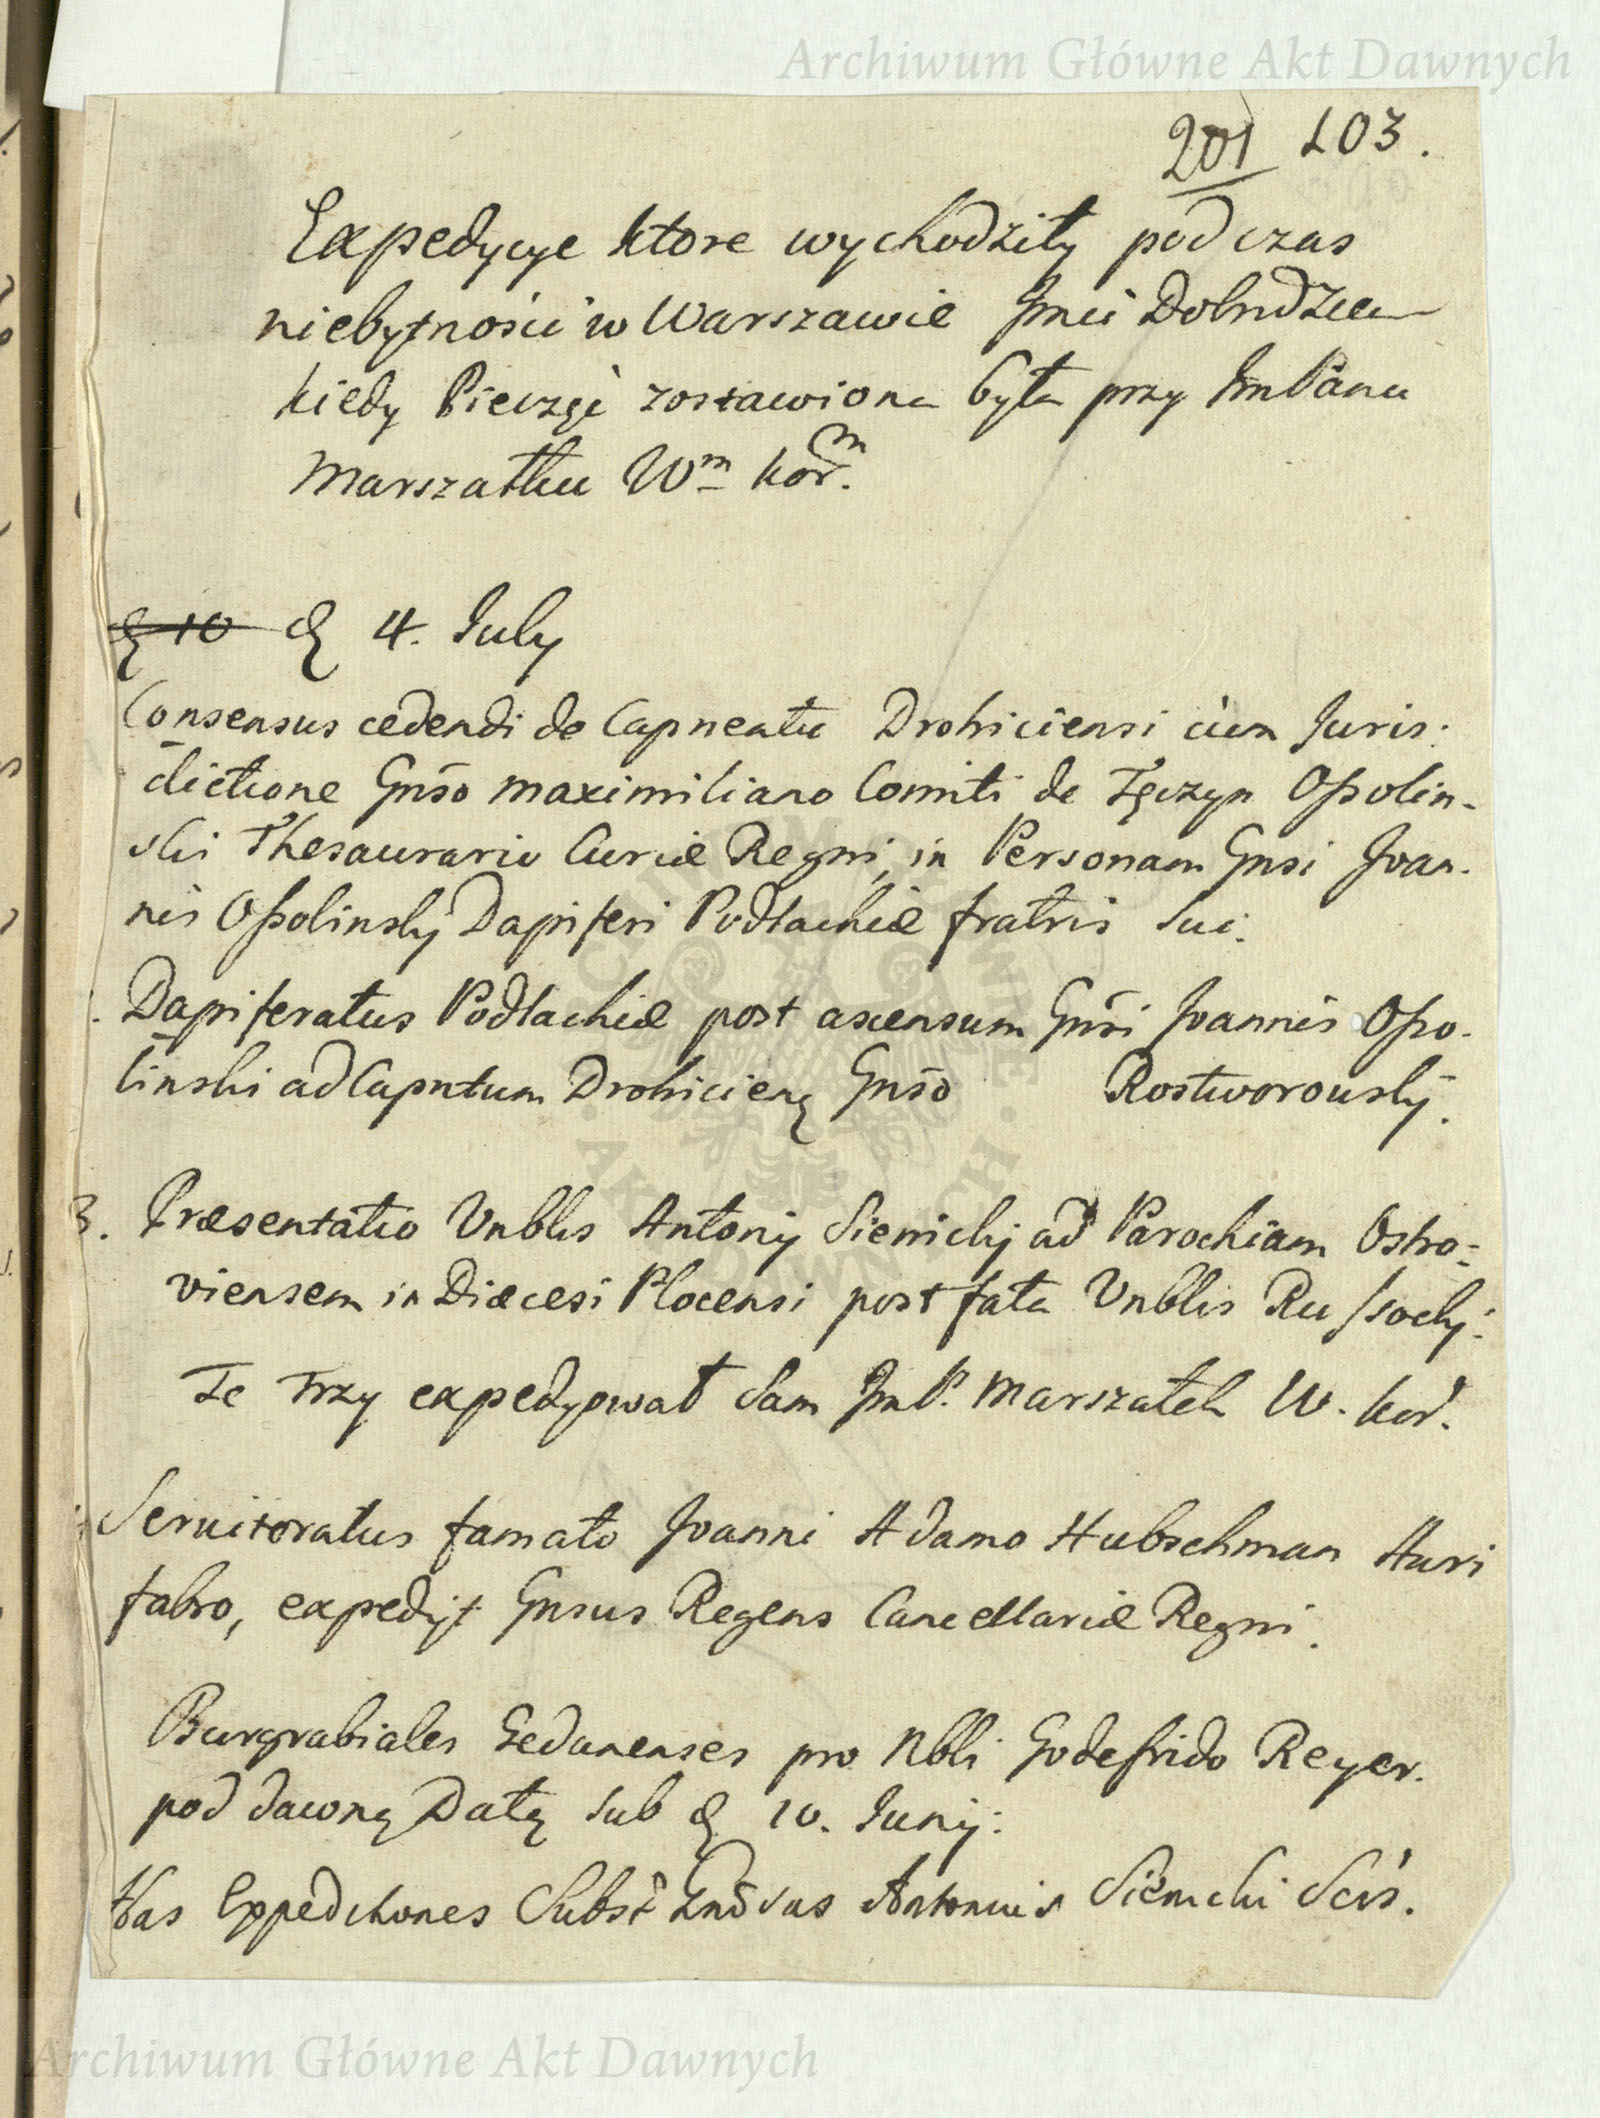 Archiwum Główne Akt Dawnych
201 103.
Expedycye ktore wychodziły podczas
niebytności w Warszawie Jmci Dobrodzieia
kiedy Pieczęć zostawiona była przy JmPanu
Marszałku Wm kor.m
d 10 d 4. July
Consensus cedendi de Capneatu Drohiciensi cum Juris:
dictione Gnso Maximiliano Comiti de Tęczyn Ossolin-
ski Thesaurario Curiæ Regni, in Personam Gnsi Joan-
nis Ossolinskÿ Dapiferi Podlachiæ fratris sui.
. Dapiferatus Podlachiæ post ascensum Gnsi Joannis Osso-
linski ad Capntum Drohicien Gnso Rostworouskÿ.
3. Præsentatio Vnblis Antonÿ Sienickÿ ad Parochiam Ostro-
viensem in Diæcesi Plocensi post fata Vnblis Russockÿ:
Te Trzy expedyował sam JmP. Marszałek W. kor.
Seruitoratus famato Joanni Adamo Hubschman Auri
fabro, expedÿt Gnsus Regens Cancellariæ Regni.
Burgrabiales Gedanenses pro Nbli Godefrido Reyer.
pod dawną Datą sub d 10. Junÿ:
Has Expeditiones Subst Gnosus Antonius Sienicki Scrs.
ARCHIWUM GŁÓWNE AKT DAWNYCH
Archiwum Główne Akt Dawnych